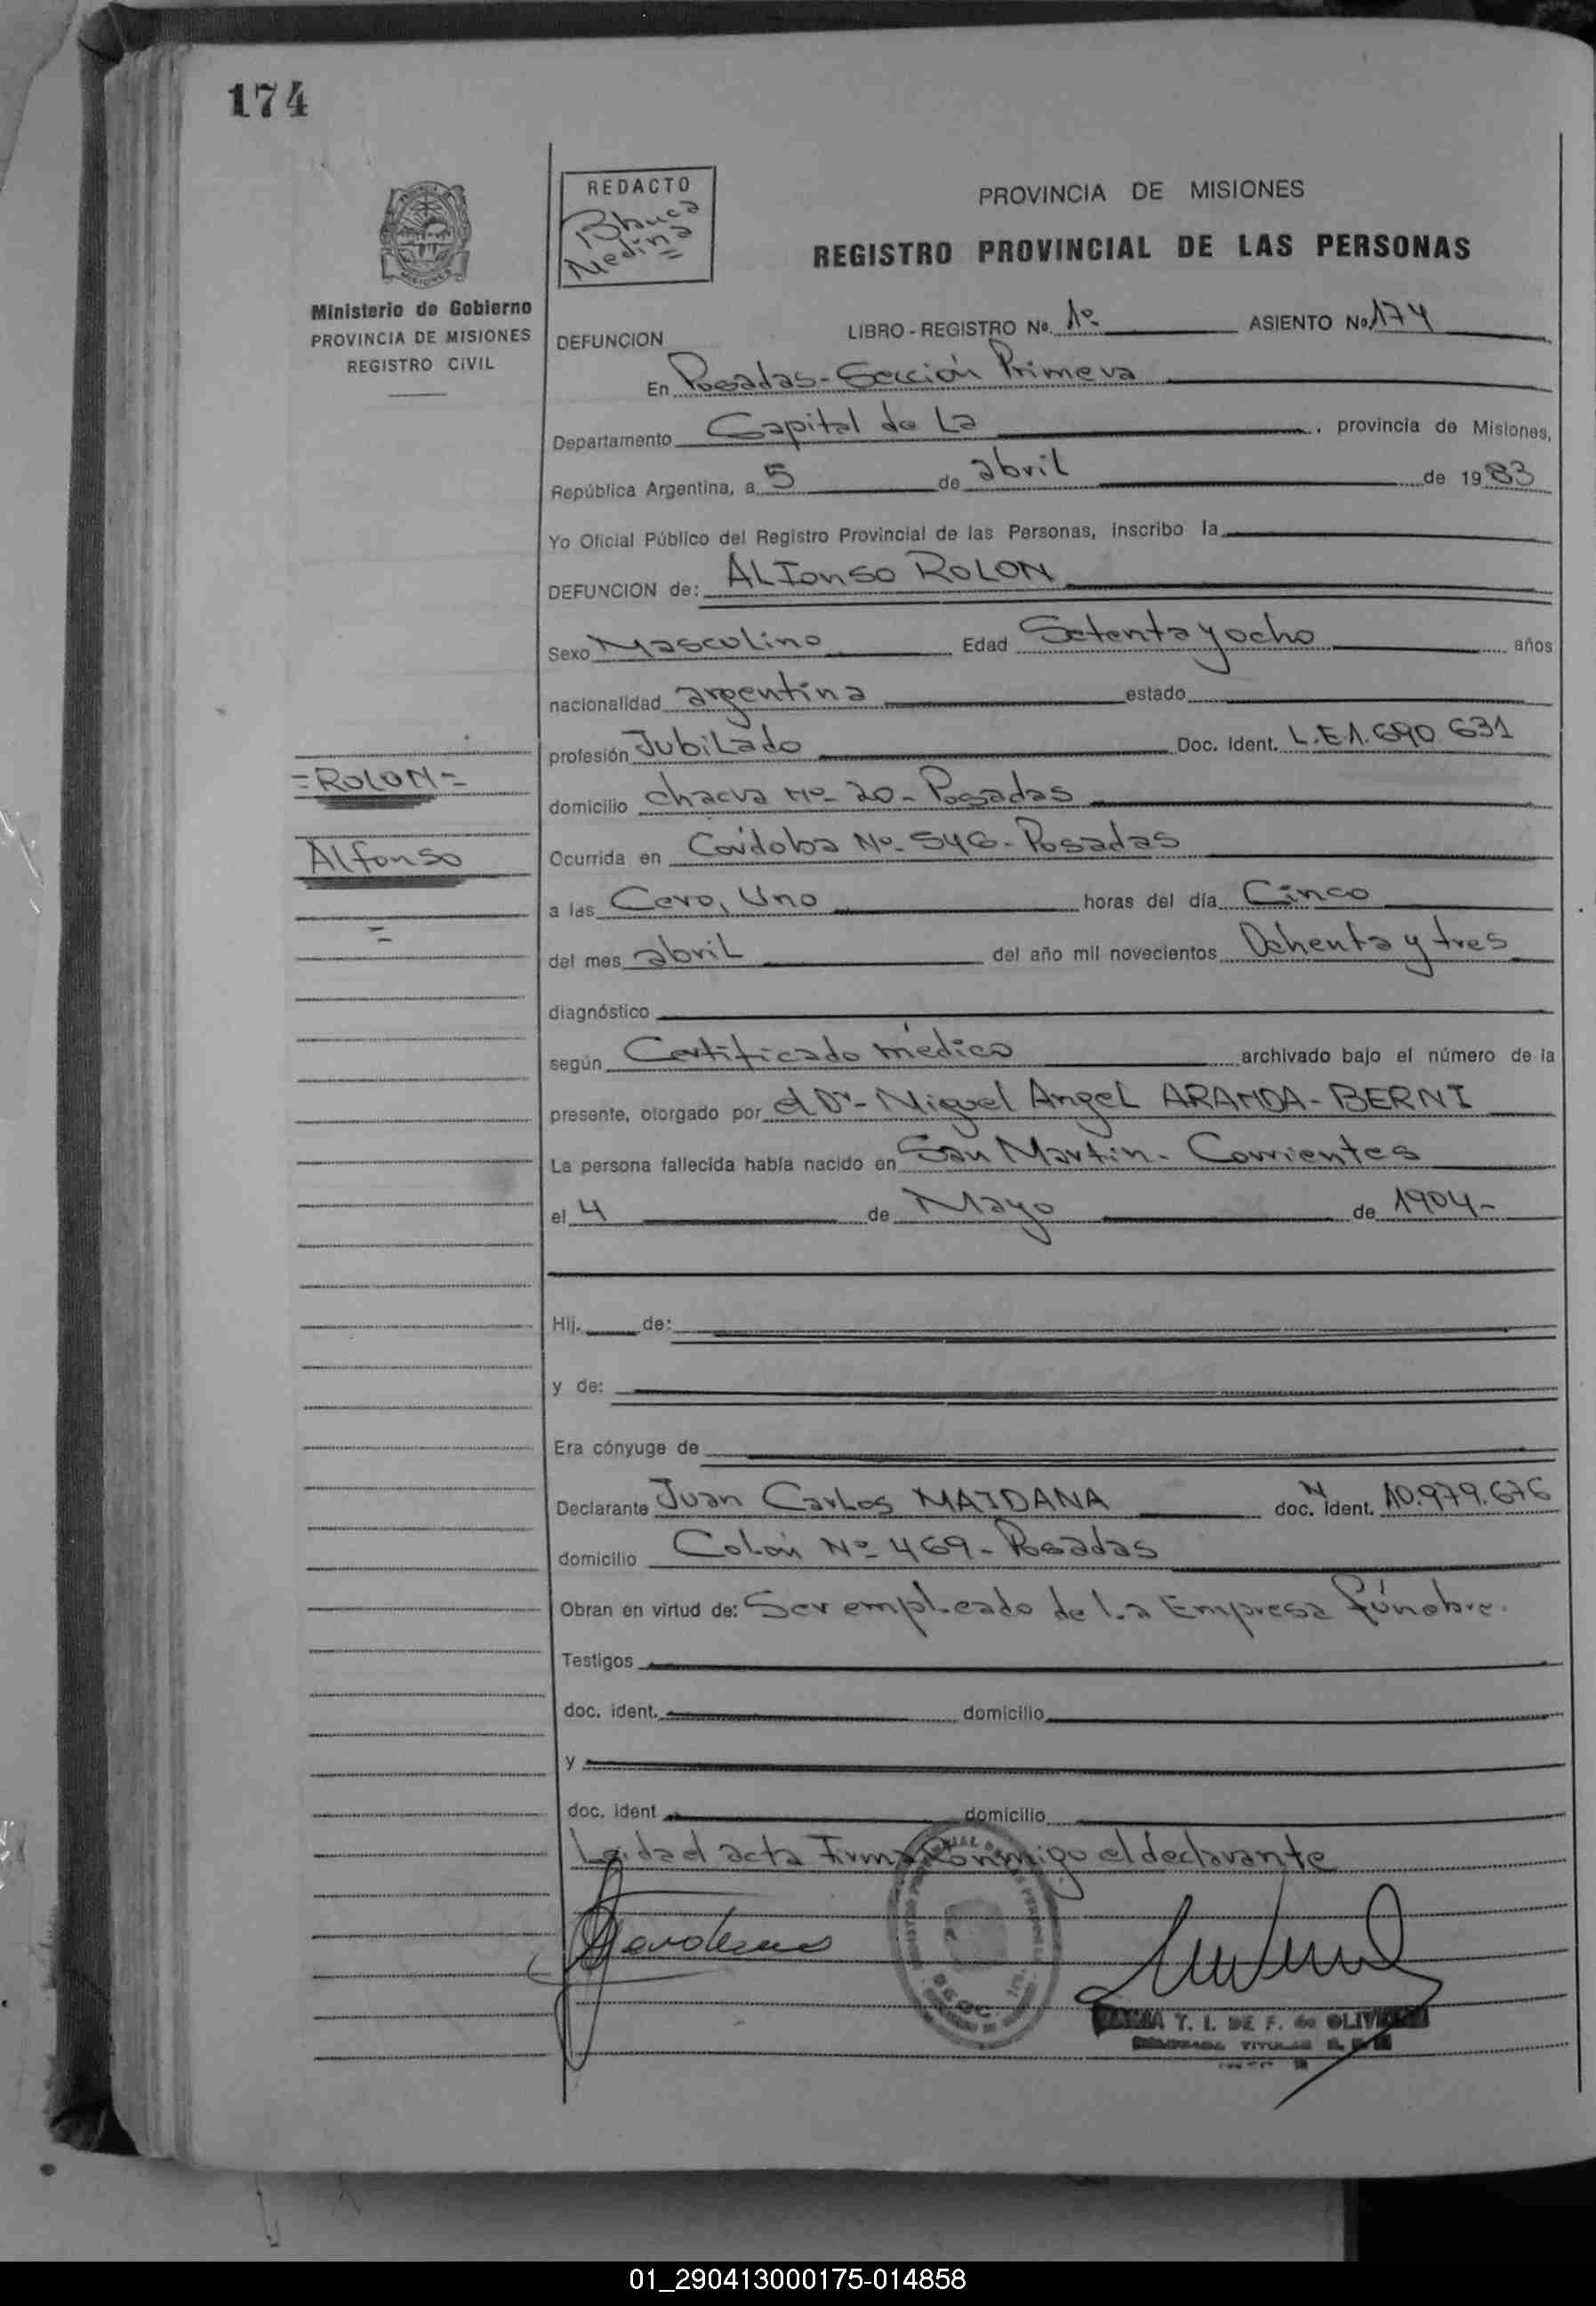 174
REDACTO
Blanca
Medina
=
PROVINCIA DE MISIONES
REGISTRO PROVINCIAL DE LAS PERSONAS
Ministerio de Gobierno
PROVINCIA DE MISIONES
REGISTRO CIVIL
DEFUNCION
LIBRO - REGISTRO No. 1º ASIENTO No. 174
En Posadas - Sección Primera
Departamento Capital de La , provincia de Misiones,
República Argentina, a 5 de abril de 1983
Yo Oficial Público del Registro Provincial de las Personas, inscribo la
DEFUNCION de: ALFonso ROLON
Sexo Masculino Edad Setenta y ocho años
nacionalidad argentina estado
profesión Jubilado Doc. Ident. L.E 1.690 631
=ROLON=
domicilio chacra Nº 20 - Posadas
Alfonso
Ocurrida en Córdoba Nº 546 - Posadas
a las Cero, Uno horas del día Cinco
=
del mes abril del año mil novecientos Ochenta y tres
diagnóstico
según Certificado médico archivado bajo el número de la
presente, otorgado por el Dr - Miguel Angel ARANDA - BERNI
La persona fallecida había nacido en San Martin - Corrientes
el 4 de Mayo de 1904-
Hij. de:
y de:
Era cónyuge de
Declarante Juan Carlos MAIDANA doc. N ident. 10.979.676
domicilio Colón Nº 469 - Posadas
Obran en virtud de: Ser empleado de La Empresa fúnebre.
Testigos
doc. ident. domicilio
y
doc. ident domicilio
Leída el acta Firma Conmigo el declarante
T. I. DE F. de OLIVEIRA
TITULAR
01_290413000175-014858